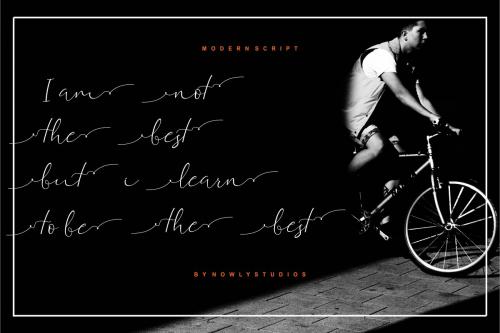 MODERNSCRIPT
I am not
the best
but i learn
to be the best
BYNOWLYSTUDIOS